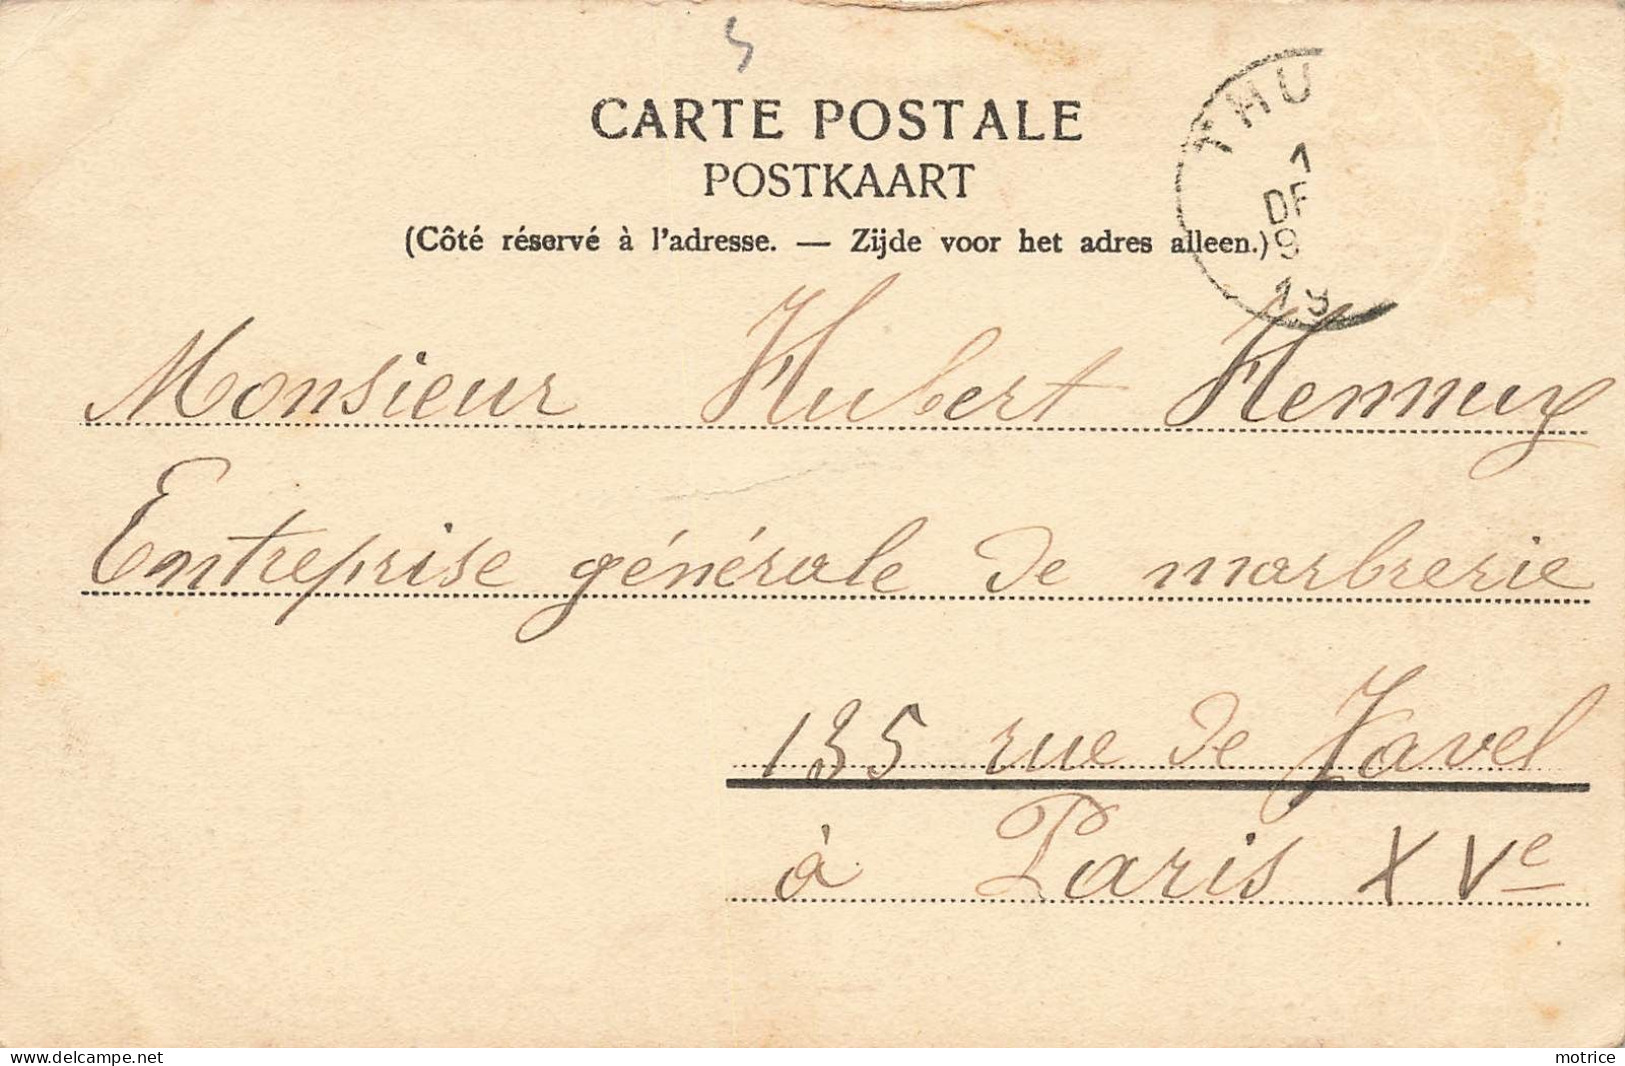 CARTE POSTALE
POSTKAART
(Côté réservé à l'adresse. — Zijde voor het adres alleen.)
THU
1
DE
9
19
Monsieur Hubert Hennuy
Entreprise générale de marbrerie
135 rue de Javel
à Paris XVe
www.delcampe.net
motrice